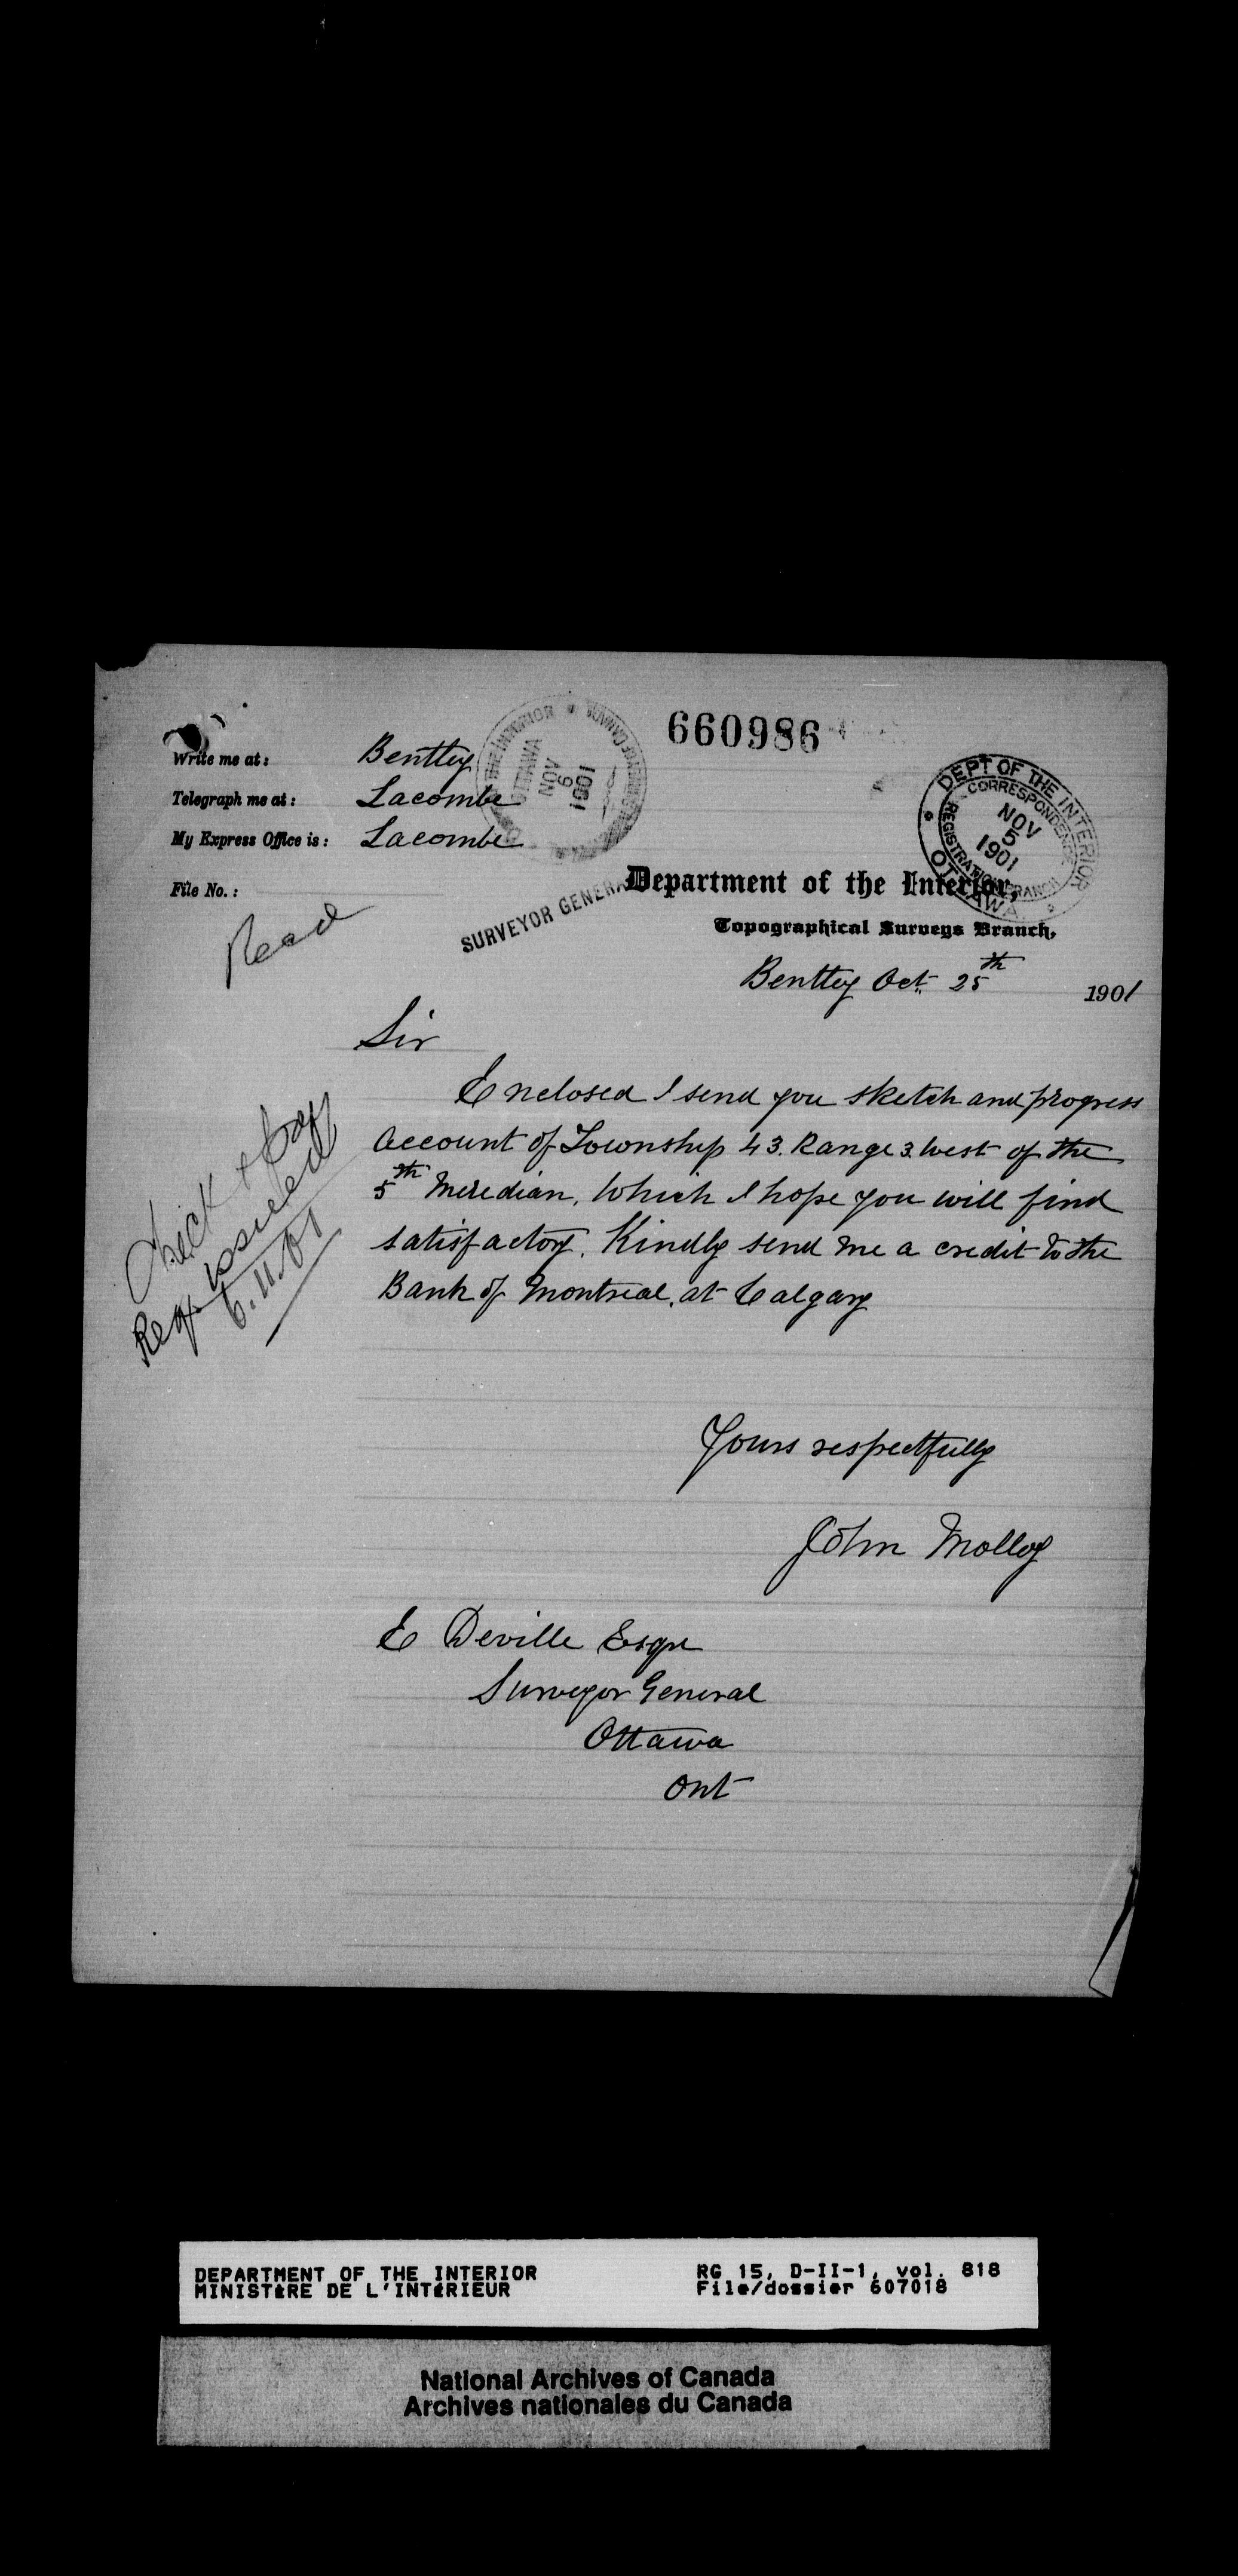 660986
Write me at: Benttey
Telegraph me at: Lacombe
My Express Office is: Lacombe
File No.:
THE INTERIOR
OTTAWA
NOV
6
1901
SURVEYOR GENERAL
DEPT OF THE INTERIOR
CORRESPONDENCE
NOV
5
1901
REGISTRATION BRANCH
OTTAWA
Department of the Interior,
Topographical Surveys Branch,
Read
Benttey Oct. 25th 1901
Sir
Enclosed I send you sketch and progress
account of Township 43. Range 3. West of the
5th Meredian. Which I hope you will find
satisfactory. Kindly send me a credit to the
Bank of Montreal. at Calgary
Check & pay
Reqn issued
6.11.01
Yours respectfully
John Molloy
E Deville Esqre
Surveyor General
Ottawa
Ont
DEPARTMENT OF THE INTERIOR
MINISTÈRE DE L'INTÉRIEUR
RG 15, D-II-1, vol. 818
File/dossier 607018
National Archives of Canada
Archives nationales du Canada